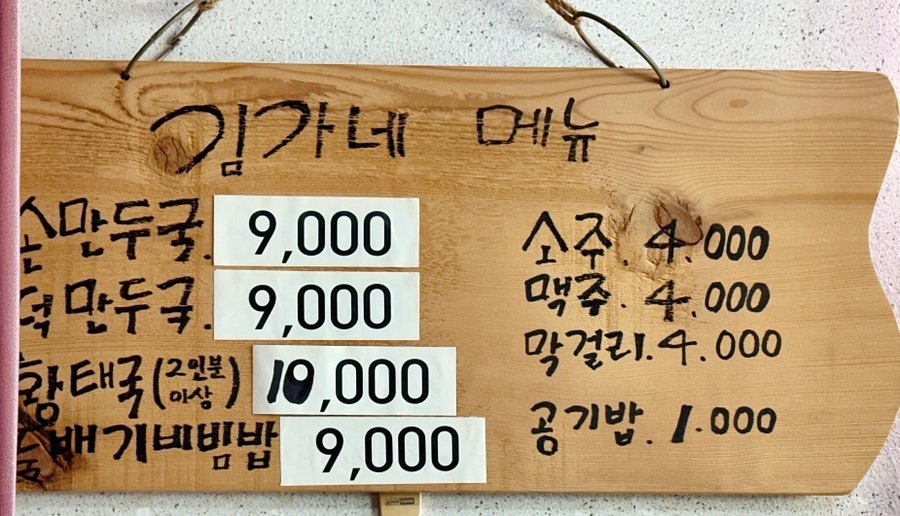 김가네 메뉴
손만두국. 9,000
떡만두국. 9,000
황태국(2인분 이상) 10,000
뚝배기비빔밥 9,000
소주. 4.000
맥주. 4.000
막걸리. 4.000
공기밥. 1.000